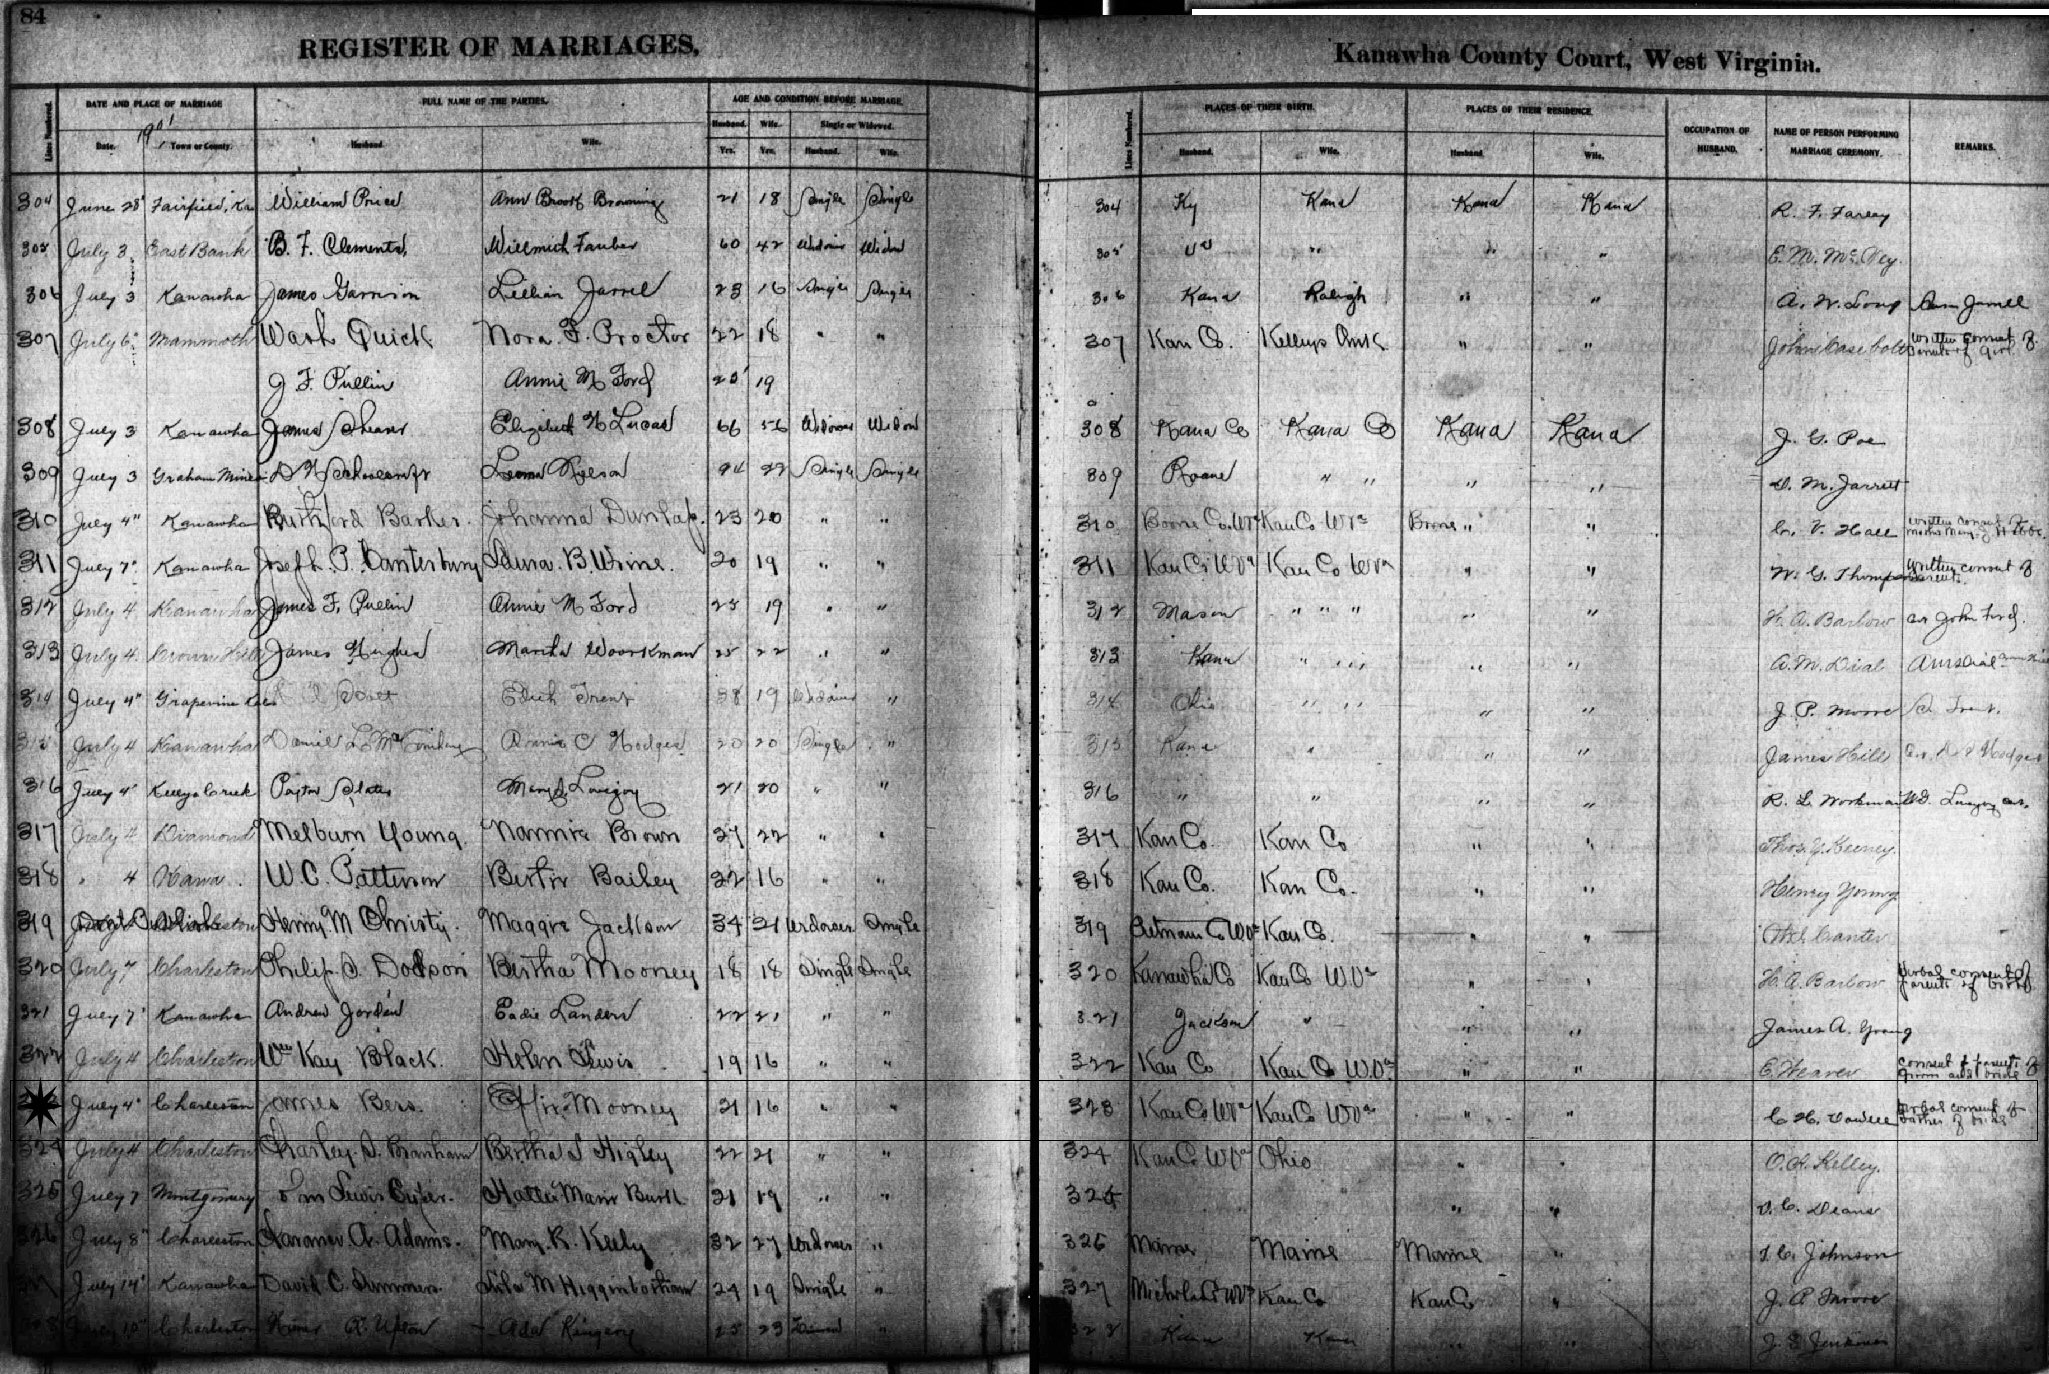 84
REGISTER OF MARRIAGES.
Kanawha County Court, West Virginia.
Lines Numbered. DATE AND PLACE OF MARRIAGE FULL NAME OF THE PARTIES. AGE AND CONDITION BEFORE MARRIAGE.
Lines Numbered. PLACES OF THEIR BIRTH. PLACES OF THEIR RESIDENCE. OCCUPATION OF HUSBAND. NAME OF PERSON PERFORMING MARRIAGE CEREMONY. REMARKS.
1901
Husband. Wife. Single or Widowed.
Date. Town or County. Husband. Wife. Yrs. Yrs. Husband. Wife.
Husband. Wife. Husband. Wife.
304 June 28 Fairfield, Ka William Price Ann Brook Browning 21 18 Single Single 304 Ky Kana Kana Kana R. F. Farley
305 July 3 East Bank B. F. Clements 60 42 Widower Widow 305 " " " E. M.
306 July 3 Kanawha James Garrison Lillian Jarrel 23 16 Single Single 306 Kana Raleigh " " A. W. Long
307 July 6 Mammoth Wash Quick Nora. F. Proctor 22 18 " " 307 Kan Co. Kellys Crk " " John Casebolt Written consent of parents of girl
J F. Pullin Annie M Ford 25 19
308 July 3 Kanawha James Shears Elizabeth H Lucas 66 56 Widower Widow 308 Kana Co Kana Co Kana Kana J. G. Poe
309 July 3 Graham Mines Leona 22 Single Single 309 Roane " " " " M. Jarrett
310 July 4" Kanawha Ruthford Barker. Johanna Dunlap. 23 20 " " 310 Boone Co. WVa Kan Co WVa Boone " " V. Hall written consent
311 July 7" Kanawha Joseph. P. Canterbury Laura. B. Wine. 20 19 " " 311 Kan Co WVa Kan Co WVa " " W. G. Thompson Written consent of parents.
312 July 4 Kanawha James F. Pullin Annie M Ford 25 19 " " 312 Mason " " " " " H. A. Barlow John Ford.
313 July 4. Crown Hill James Hughes Martha Woorkman 25 22 " " 313 Kana " " " " " A. M. Dial
314 July 4" Grapevine Edith Trent 38 19 Widower " 314 Ohio " " " " J. P. Moore Trent.
315 July 4 Kanawha Daniel L. Annie C Hodges 20 20 Single " 315 Kana " " " James Hill Hodges
316 July 4" Kellys Creek Payton Slater Mary Lovejoy 21 20 " " 316 " " " " R. L. Workman
317 July 4 Diamond Melburn Young. Nannie Brown 27 22 " " 317 Kan Co. Kan Co " " Thos. J. Keeney.
318 " 4 Kana. W. C. Patterson Bertie Bailey 22 16 " " 318 Kan Co. Kan Co. " " Henry Young
319 Charleston Henry M Christy. Maggie Jackson 34 21 Widower Single 319 Putnam Co WVa Kan Co. " " Canter
320 July 7 Charleston Philip S. Dodson Bertha Mooney 18 18 Single Single 320 Kanawha Co Kan Co W.Va " " H. A. Barlow Verbal consent of parents of both
321 July 7" Kanawha Andrew Jordan Eadie Landers 22 21 " " 321 Jackson " " " James A. Young
322 July 4 Charleston Wm Kay Black. Helen Lewis 19 16 " " 322 Kan Co Kan Co W.Va " " C. Weaver Consent of parents of groom and bride
July 4" Charleston James Bess. Effie Mooney 21 16 " " 323 Kan Co WVa Kan Co WVa " " C. H. Verbal consent of father of bride
324 July 4 Charleston Charley. S. Branham Bertha S Higley 22 21 " " 324 Kan Co WVa Ohio " " Kelley.
325 July 7 Montgomery Lewis Hattie Marie Burk 21 19 " " 325 " " Deans
326 July 8" Charleston A. Adams. Mary. K. Keely 32 27 Widower " 326 Maine Maine Maine " Johnson
July 14" Kanawha David C. Summers. M Higginbotham 24 19 Single " 327 Nicholas Co WVa Kan Co Kan Co " J. P. Moore
Charleston Upton Ada Kingery 25 23 " 328 Kana Kana " " Jenkins